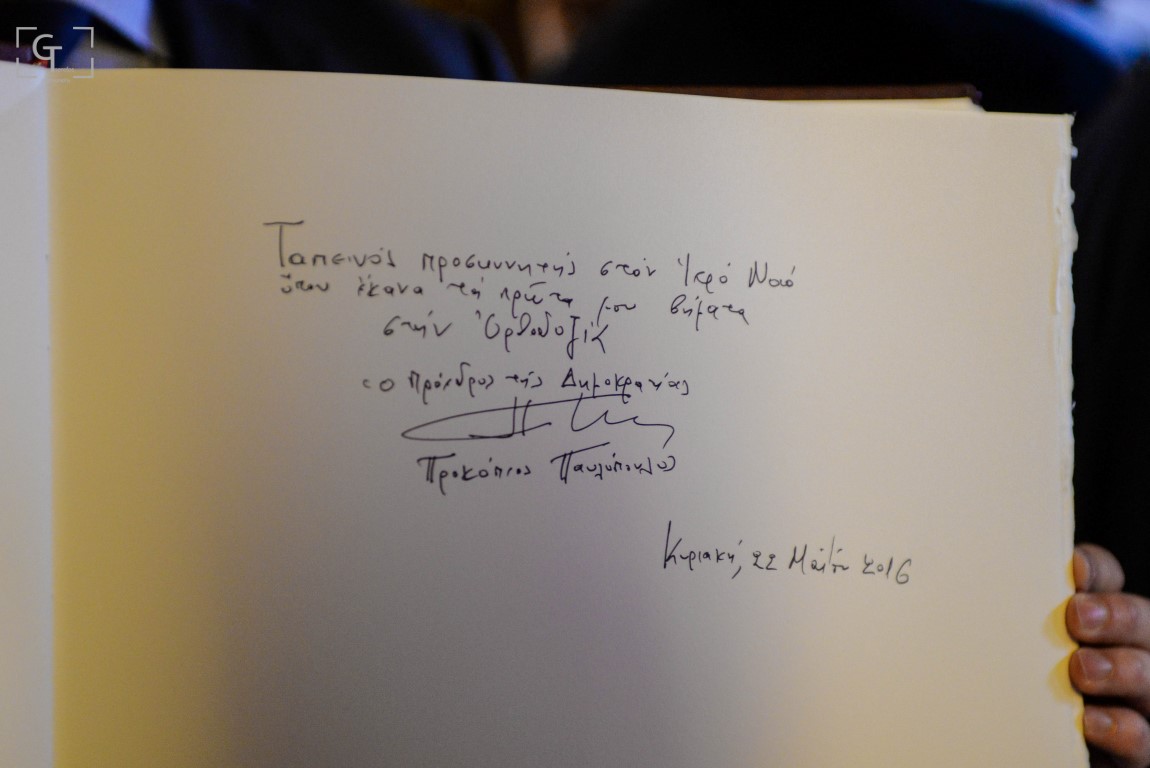 GT
Ταπεινός προσκυνητής στόν Ἱερό Ναό
ὅπου ἔκανα τά πρῶτα μου βήματα
στήν Ὀρθοδοξία
Ὁ Πρόεδρος τῆς Δημοκρατίας
Προκόπιος Παυλόπουλος
Κυριακή, 22 Μαΐου 2016